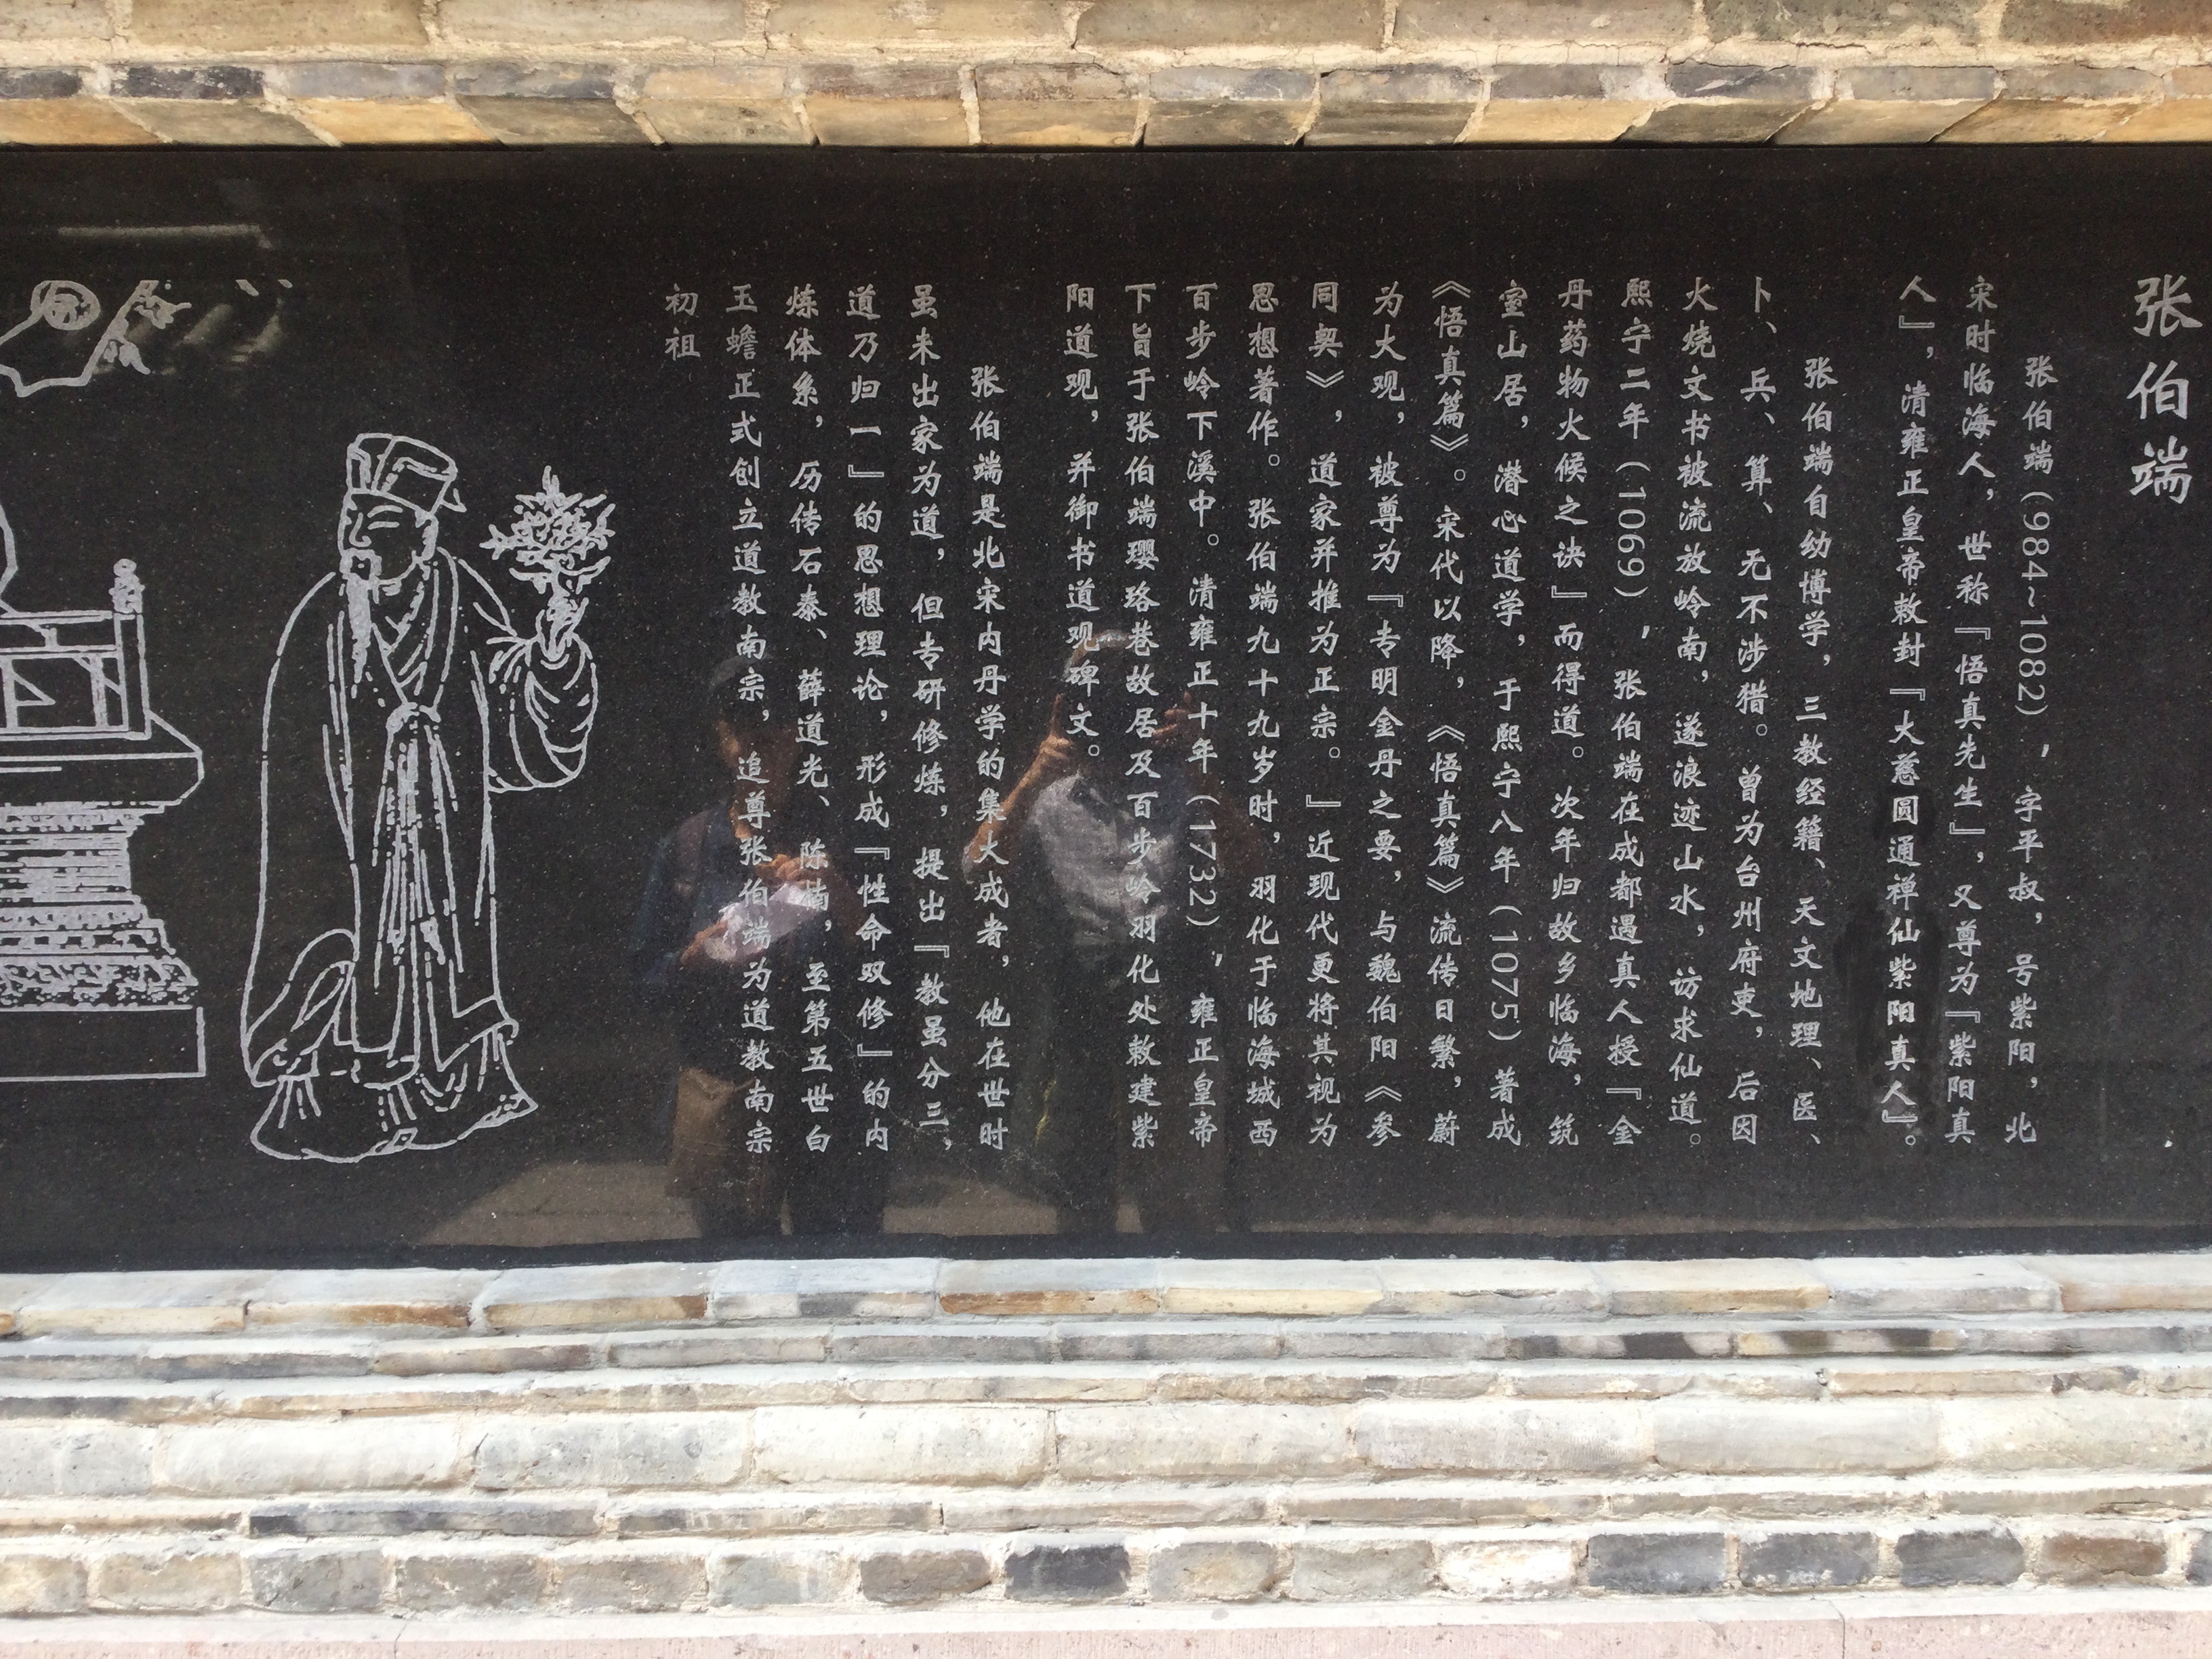 张伯端
张伯端（984~1082），字平叔，号紫阳，北
宋时临海人，世称『悟真先生』，又尊为『紫阳真
人』，清雍正皇帝敕封『大慈圆通禅仙紫阳真人』。
张伯端自幼博学，三教经籍、天文地理、医、
卜、兵、算、无不涉猎。曾为台州府吏，后因
火烧文书被流放岭南，遂浪迹山水，访求仙道。
熙宁二年（1069），张伯端在成都遇真人授『金
丹药物火候之诀』而得道。次年归故乡临海，筑
室山居，潜心道学，于熙宁八年（1075）著成
《悟真篇》。宋代以降，《悟真篇》流传日繁，蔚
为大观，被尊为『专明金丹之要，与魏伯阳《参
同契》，道家并推为正宗。』近现代更将其视为
思想著作。张伯端九十九岁时，羽化于临海城西
百步岭下溪中。清雍正十年（1732），雍正皇帝
下旨于张伯端璎珞巷故居及百步岭羽化处敕建紫
阳道观，并御书道观碑文。
张伯端是北宋内丹学的集大成者，他在世时
虽未出家为道，但专研修炼，提出『教虽分三，
道乃归一』的思想理论，形成『性命双修』的内
炼体系，历传石泰、薛道光、陈楠，至第五世白
玉蟾正式创立道教南宗，追尊张伯端为道教南宗
初祖